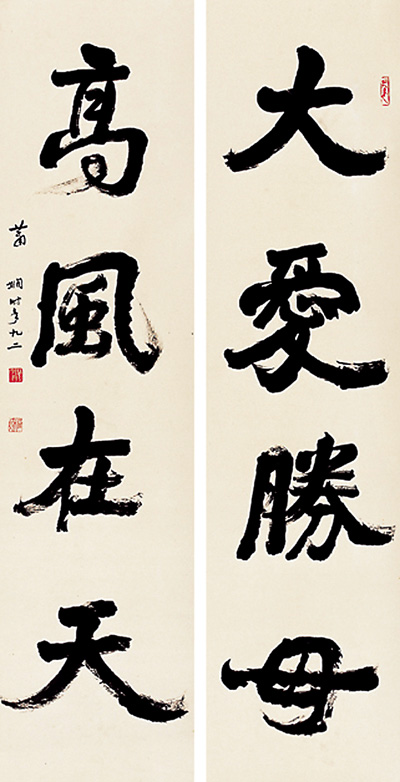 大愛勝母
高風在天
蕭嫻时年九二